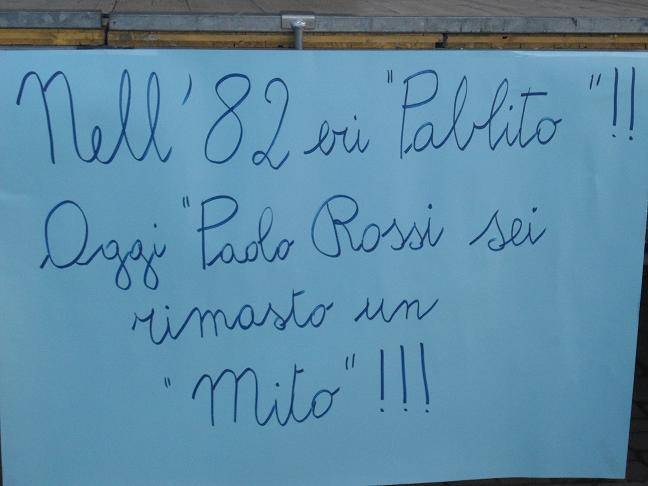 Nell' 82 eri "Pablito"!!
Oggi "Paolo Rossi sei
rimasto un
"Mito"!!!